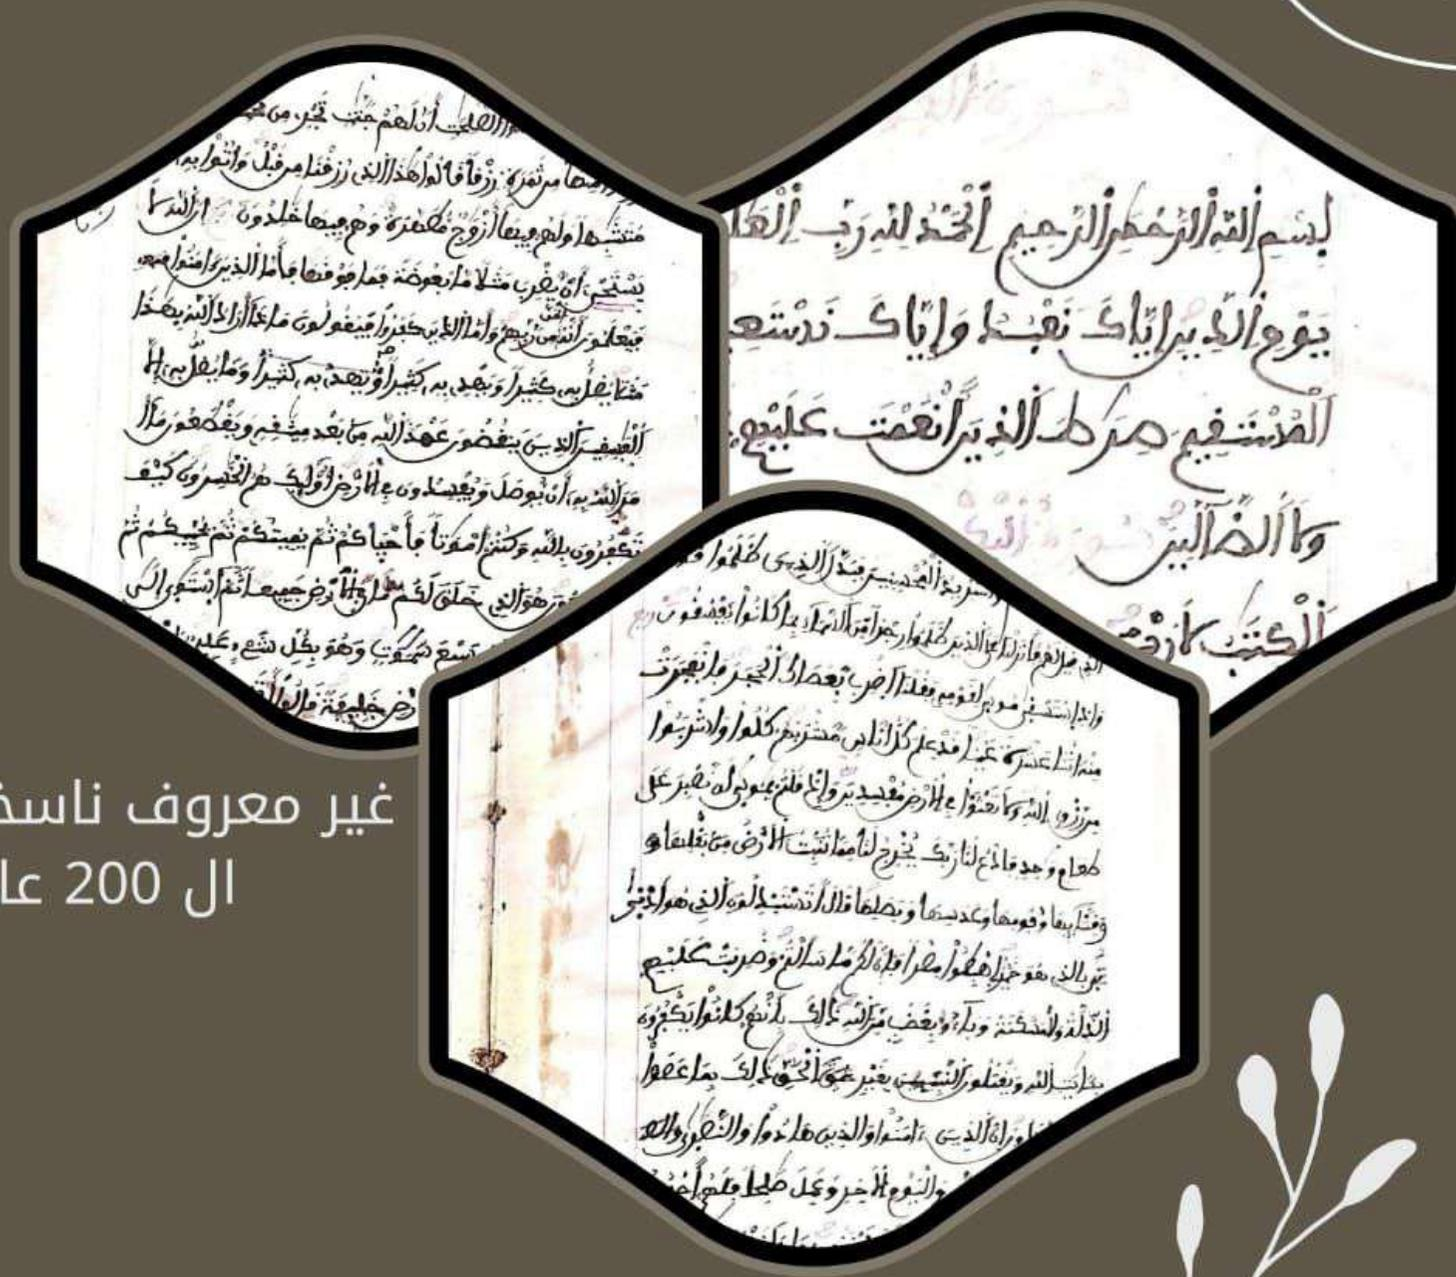 بسم الله الرحمن الرحيم الحمد لله رب
يوم الدين إياك نعبد وإياك
المستقيم صرط الذين أنعمت عليهم
ولا الضآلين
الكتب لا
الصلحت أن لهم جنت تجرى من
منها من ثمرة رزقا قالوا هذا الذى رزقنا من قبل وأتوا به
متشبها ولهم فيها أزوج مطهرة وهم فيها خلدون إن الله لا
يستحى أن يضرب مثلا ما بعوضة فما فوقها فأما الذين ءامنوا
فيعلمون أنه الحق من ربهم وأما الذين كفروا فيقولون ماذا أراد الله بهذا
مثلا يضل به كثيرا ويهدى به كثيرا وما يضل به إلا
الفسقين الذين ينقضون عهد الله من بعد ميثقه ويقطعون ما أ
مر الله به أن يوصل ويفسدون فى الأرض أولئك هم الخسرون كيف
تكفرون بالله وكنتم أموتا فأحياكم ثم يميتكم ثم يحييكم ثم
هو الذى خلق لكم ما فى الأرض جميعا ثم استوى إلى
سبع سموت وهو بكل شىء عليم
خليفة قالوا
المحسنين فبدل الذين ظلموا
الذى قيل لهم فأنزلنا على الذين ظلموا رجزا من السماء بما كانوا يفسقون
وإذ استسقى موسى لقومه فقلنا اضرب بعصاك الحجر فانفجرت
منه اثنتا عشرة عينا قد علم كل أناس مشربهم كلوا واشربوا
من رزق الله ولا تعثوا فى الأرض مفسدين وإذ قلتم يموسى لن نصبر على
طعام وحد فادع لنا ربك يخرج لنا مما تنبت الأرض من بقلها و
وقثائها وفومها وعدسها وبصلها قال أتستبدلون الذى هو أدنى
بالذى هو خير اهبطوا مصرا فإن لكم ما سألتم وضربت عليهم
الذلة والمسكنة وبآءو بغضب من الله ذلك بأنهم كانوا يكفرون
بئايت الله ويقتلون النبيين بغير الحق ذلك بما عصوا
إن الذين ءامنوا والذين هادوا والنصرى
واليوم الأخر وعمل صلحا فلهم
غير معروف
ال 200